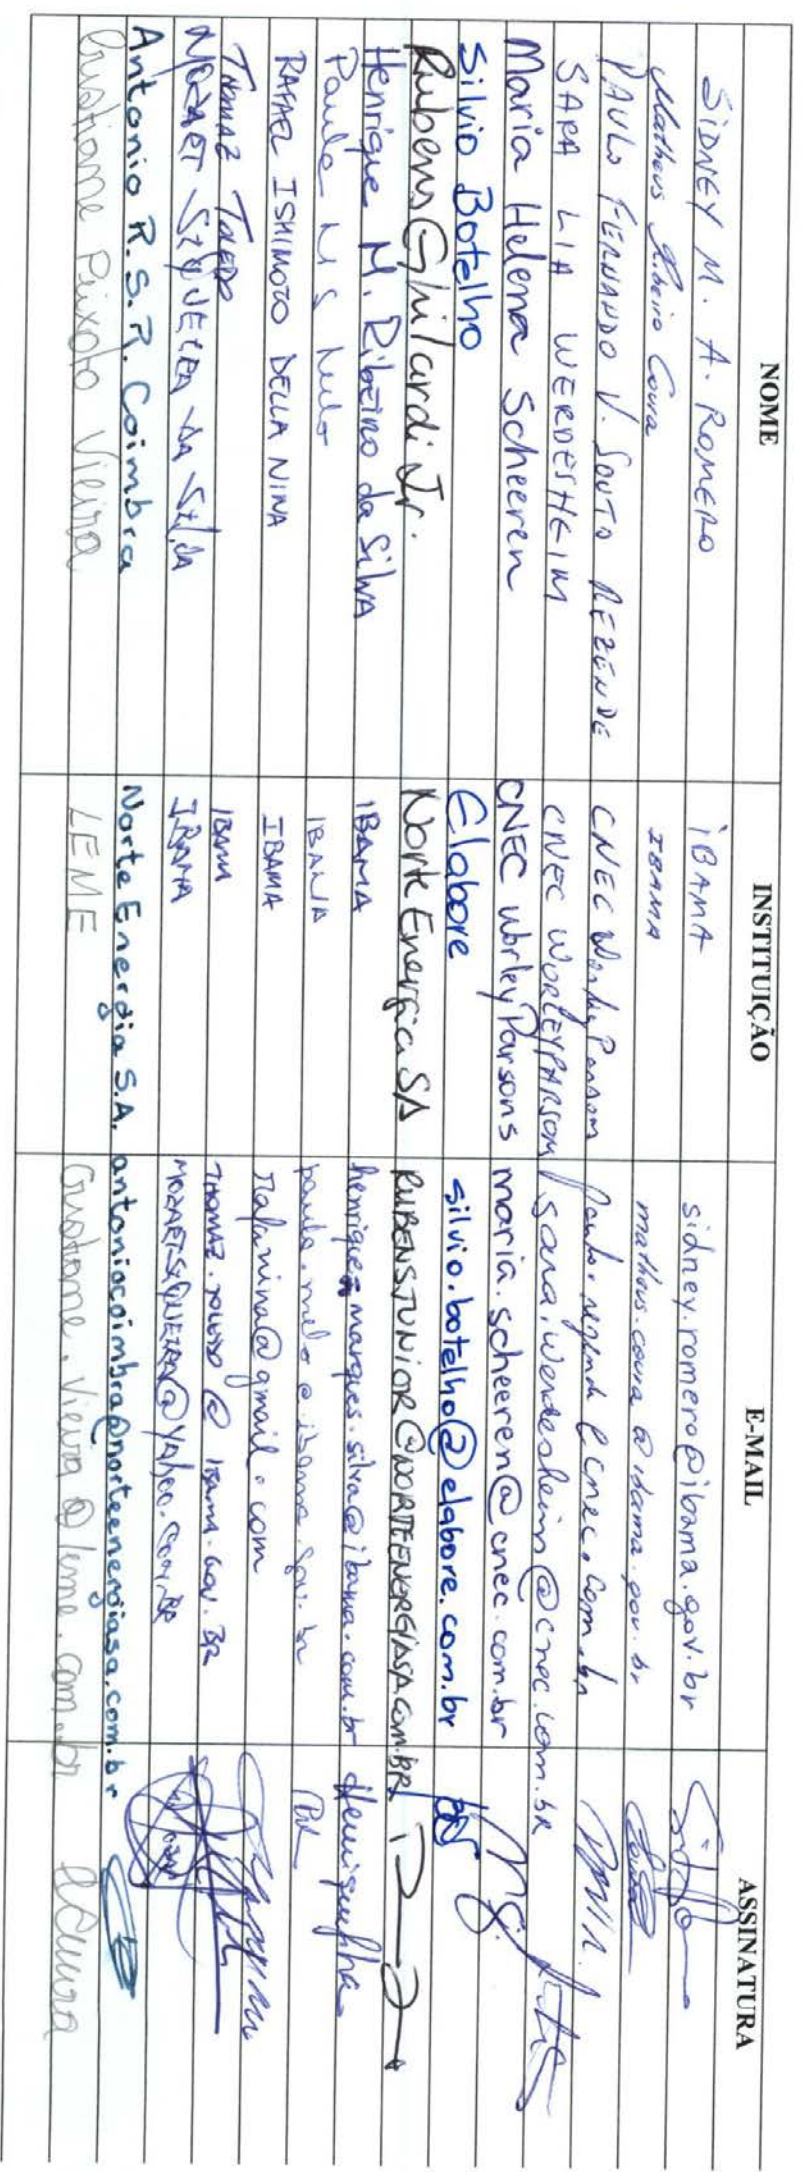 NOME INSTITUIÇÃO E-MAIL ASSINATURA
SIDNEY M. A. ROMERO IBAMA sidney.romero@ibama.gov.br
Matheus Ribeiro Coura IBAMA matheus.coura@ibama.gov.br
PAULO FERNANDO V. SOUTO REZENDE CNEC WorleyParsons paulo.rezende@cnec.com.br
SARA LIA WERDESHEIM CNEC WORLEYPARSONS sara.werdesheim@cnec.com.br
Maria Helena Scheeren CNEC WorleyParsons maria.scheeren@cnec.com.br
Silvio Botelho Elabore silvio.botelho@elabore.com.br
Rubens Ghilardi Jr. Norte Energia SA RUBENSJUNIOR@NORTEENERGIASA.COM.BR
Henrique M. Ribeiro da Silva IBAMA henrique.marques.silva@ibama.com.br
Paula M S Melo IBAMA paula.melo@ibama.gov.br
RAFAEL ISHIMOTO DELLA NINA IBAMA rafanina@gmail.com
THOMAZ TOLEDO IBAMA THOMAZ.TOLEDO@IBAMA.GOV.BR
MOZART SIQUEIRA DA SILVA IBAMA MOZARTSIQUEIRA@YAHOO.COM.BR
Antonio R.S.R. Coimbra Norte Energia S.A. antoniocoimbra@norteenergiasa.com.br
Cristiane Peixoto Vieira LEME Cristiane.Vieira@leme.com.br